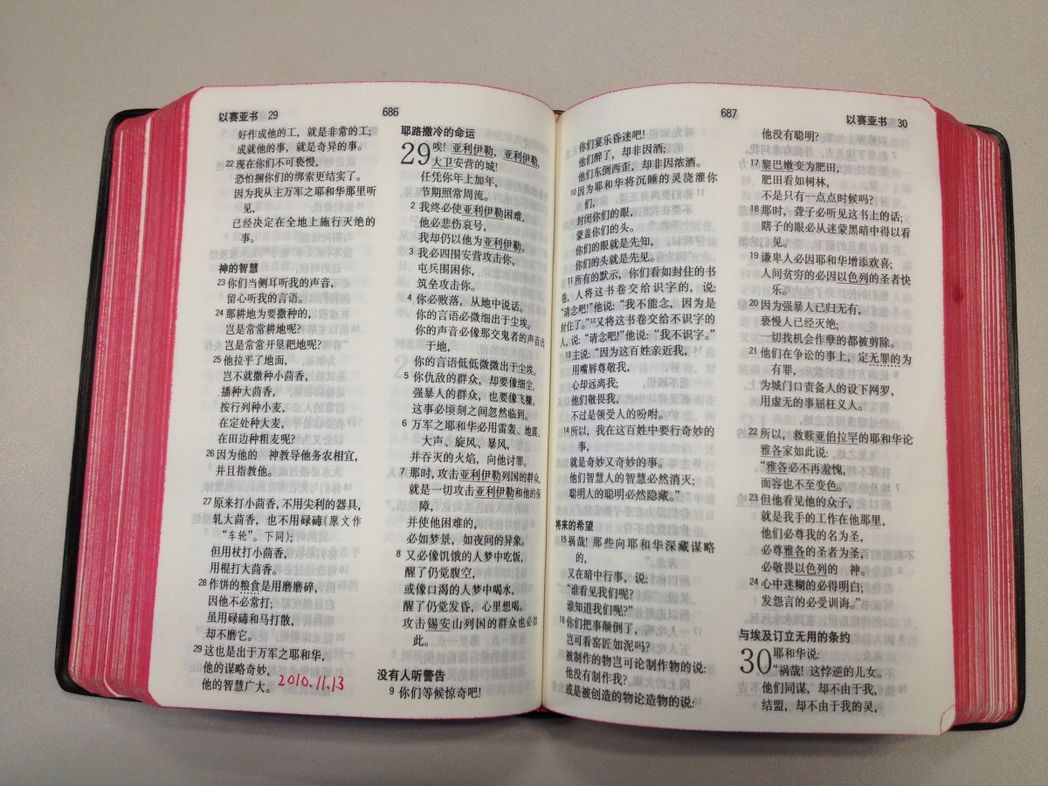 以赛亚书 29
686
好作成他的工，就是非常的工；
成就他的事，就是奇异的事。
22 现在你们不可亵慢，
恐怕捆你们的绑索更结实了。
因为我从主万军之耶和华那里听
见，
已经决定在全地上施行灭绝的
事。
神的智慧
23 你们当侧耳听我的声音，
留心听我的言语。
24 那耕地为要撒种的，
岂是常常耕地呢？
岂是常常开垦耙地呢？
25 他拉平了地面，
岂不就撒种小茴香，
播种大茴香，
按行列种小麦，
在定处种大麦，
在田边种粗麦呢？
26 因为他的 神教导他务农相宜，
并且指教他。
27 原来打小茴香，不用尖利的器具，
轧大茴香，也不用碌碡(原文作
“车轮”。下同)；
但用杖打小茴香，
用棍打大茴香。
28 作饼的粮食是用磨磨碎，
因他不必常打；
虽用碌碡和马打散，
却不磨它。
29 这也是出于万军之耶和华，
他的谋略奇妙，
他的智慧广大。 2010.11.13
耶路撒冷的命运
29 唉！亚利伊勒，亚利伊勒，
大卫安营的城！
任凭你年上加年，
节期照常周流。
2 我终必使亚利伊勒困难，
他必悲伤哀号，
我却仍以他为亚利伊勒。
3 我必四围安营攻击你，
屯兵围困你，
筑垒攻击你。
4 你必败落，从地中说话。
你的言语必微细出于尘埃。
你的声音必像那交鬼者的声音出
于地，
你的言语低低微微出于尘埃。
5 你仇敌的群众，却要像细尘，
强暴人的群众，也要像飞糠。
这事必顷刻之间忽然临到。
6 万军之耶和华必用雷轰、地震、
大声、旋风、暴风，
并吞灭的火焰，向他讨罪。
7 那时，攻击亚利伊勒列国的群众，
就是一切攻击亚利伊勒和他的保
障，
并使他困难的，
必如梦景，如夜间的异象。
8 又必像饥饿的人梦中吃饭，
醒了仍觉腹空，
或像口渴的人梦中喝水，
醒了仍觉发昏，心里想喝。
攻击锡安山列国的群众也必如
此。
没有人听警告
9 你们等候惊奇吧！
687
以赛亚书 30
你们宴乐昏迷吧！
他们醉了，却非因酒；
他们东倒西歪，却非因浓酒。
10 因为耶和华将沉睡的灵浇灌你
们，
封闭你们的眼，
蒙盖你们的头。
你们的眼就是先知，
你们的头就是先见。
11 所有的默示，你们看如封住的书
卷，人将这书卷交给识字的，说：
“请念吧！”他说：“我不能念，因为是
封住了。”12又将这书卷交给不识字的
人，说：“请念吧！”他说：“我不识字。”
13 主说：“因为这百姓亲近我，
用嘴唇尊敬我，
心却远离我；
他们敬畏我，
不过是领受人的吩咐。
14 所以，我在这百姓中要行奇妙的
事，
就是奇妙又奇妙的事。
他们智慧人的智慧必然消灭；
聪明人的聪明必然隐藏。”
将来的希望
15 祸哉！那些向耶和华深藏谋略
的，
又在暗中行事，说：
“谁看见我们呢？
谁知道我们呢？”
16 你们把事颠倒了，
岂可看窑匠如泥吗？
被制作的物岂可论制作物的说：
他没有制作我？
或是被创造的物论造物的说：
他没有聪明？
17 黎巴嫩变为肥田，
肥田看如树林，
不是只有一点点时候吗？
18 那时，聋子必听见这书上的话；
瞎子的眼必从迷蒙黑暗中得以看
见。
19 谦卑人必因耶和华增添欢喜；
人间贫穷的必因以色列的圣者快
乐。
20 因为强暴人已归无有，
亵慢人已经灭绝；
一切找机会作孽的都被剪除。
21 他们在争讼的事上，定无罪的为
有罪，
为城门口责备人的设下网罗，
用虚无的事屈枉义人。
22 所以，救赎亚伯拉罕的耶和华论
雅各家如此说：
“雅各必不再羞愧，
面容也不至变色。
23 但他看见他的众子，
就是我手的工作在他那里，
他们必尊我的名为圣，
必尊雅各的圣者为圣，
必敬畏以色列的 神。
24 心中迷糊的必得明白；
发怨言的必受训诲。”
与埃及订立无用的条约
30 耶和华说：
“祸哉！这悖逆的儿女。
他们同谋，却不由于我，
结盟，却不由于我的灵，